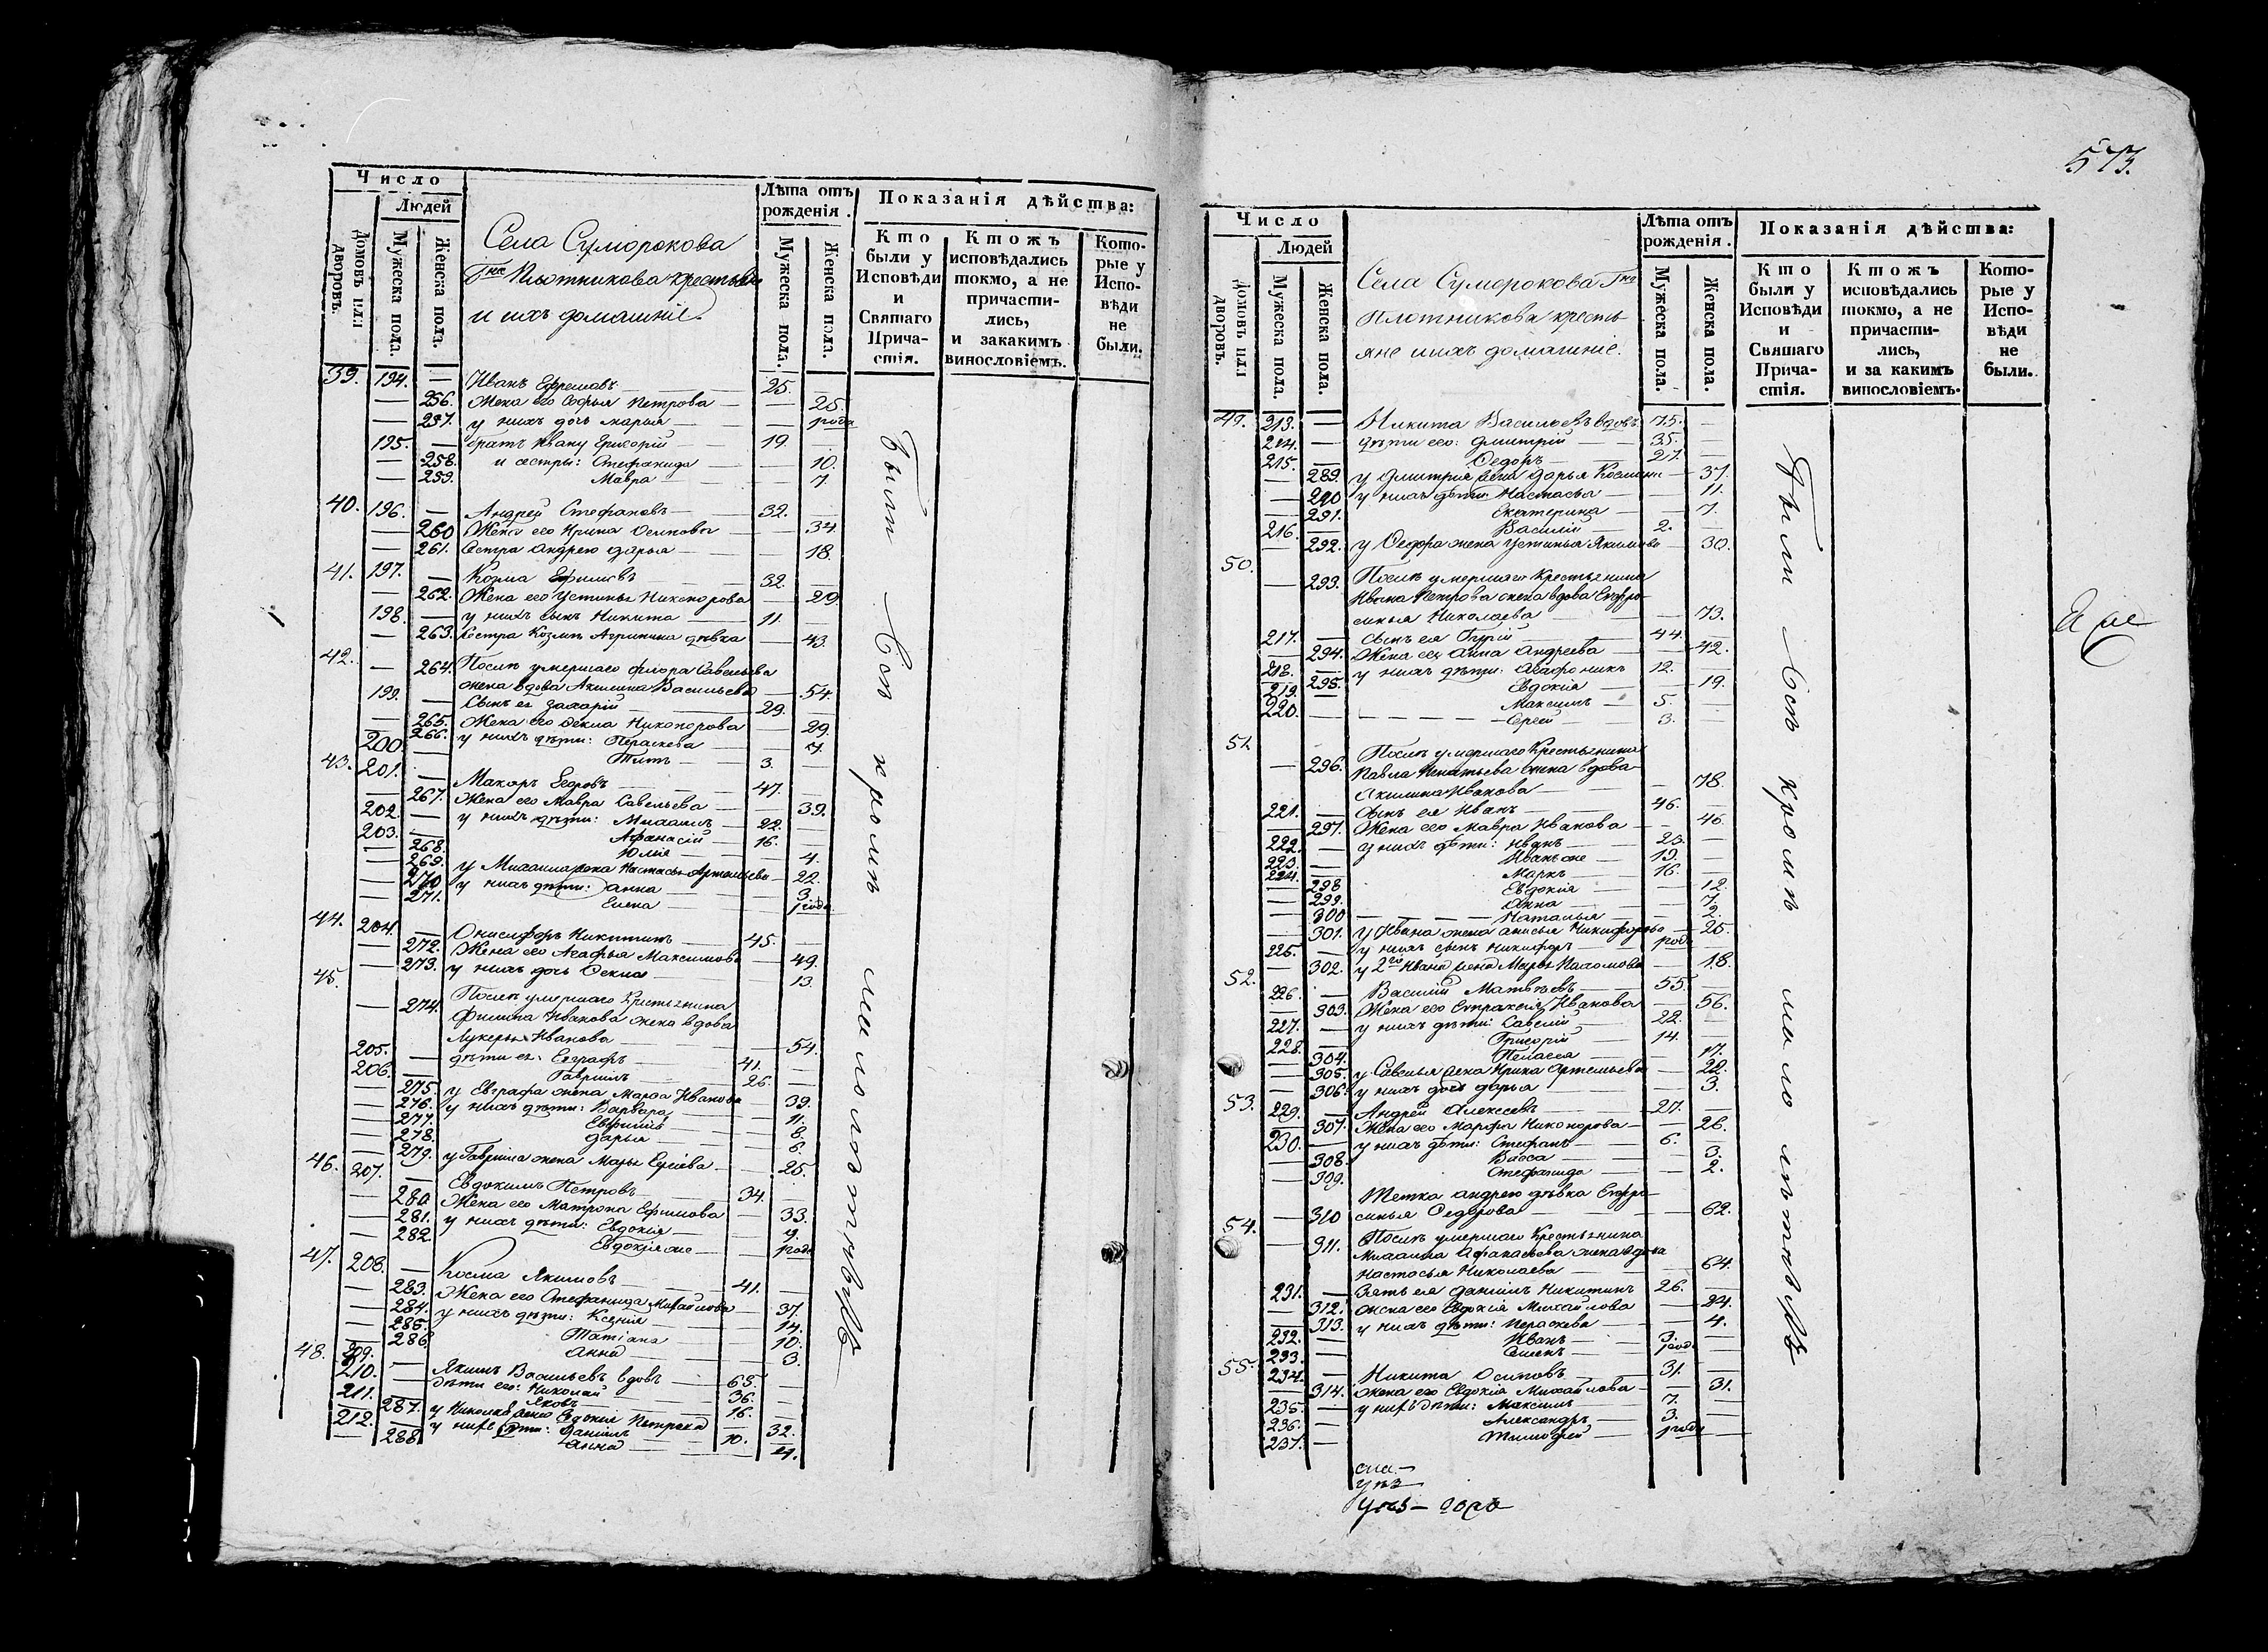 Число
Людей
Домовъ или дворовъ.
Мужеска пола.
Женска пола.
Села Суморокова
Гна Плотникова крестьяне
и ихъ домашніе.
Лѣта отъ рожденія.
Мужеска пола.
Женска пола.
Показанія дѣйства:
Кто были у Исповѣди и Святаго Причастія.
Ктожъ исповѣдались токмо, а не причастились, и закакимъ винословіемъ.
Которые у Исповѣди не были.
39. 194. — Иванъ Ефремовъ — 25.
— 256. Жена его Софья Петрова — 25.
— 257. у нихъ дочь марья — 1 года
195. — братъ Ивану Григорій — 19.
— 258. и сестры: Стефанида — 10.
— 259. Мавра — 7
40. 196. — Андрей Стефановъ — 32.
— 260 Жена его Ирина Осипова — 34
— 261. Сестра андрею дарья — 18.
41. 197. — Козма Ефимовъ 32.
— 262. Жена его Устинья Никонорова — 29
198. — у нихъ сынъ Никита — 11.
— 263. Сестра Козмы Агрипина дѣвка — 43.
42. — 264. Послѣ умершаго фиора Савельева
жена вдова Акилина Васильева — 54.
199. — Сынъ ея захарій — 29.
— 265. Жена его Фекла Никонорова — 29.
— 266. у нихъ дѣти: Параскева — 7.
200 — Титъ — 3.
43. 201. — Макаръ Егоровъ — 47.
— 267. Жена его Мавра Савельева — 39.
202. — у нихъ дѣти: Михаилъ — 22.
203. — Афанасій — 16.
— 268. Юлія — 4.
— 269. у Михаила жена Настасья Артемьева — 22.
— 270 у нихъ дѣти: Анна — 3.
— 271. Елена — 1 года
44. 204. — Онисифоръ Никитинъ — 45.
— 272. Жена его Агафья Максимова — 49.
— 273. у нихъ дочь Фекла — 13.
45. — 274. Послѣ умершаго Крестьянина
Филипа Иванова жена вдова
Лукерья Иванова — 54.
205. — дѣти ея: Евграфъ — 41.
206. — Гавріилъ — 26.
— 275. у Евграфа жена Марфа Иванова — 39.
— 276. у нихъ дѣти: Варвара — 11.
— 277. Евфимія — 8.
— 278. дарья — 6.
— 279. у Гавріила жена Марья — 25.
46. 207. — Евдокимъ Петровъ — 34.
— 280. Жена его Матрона Ефимова — 33.
— 281. у нихъ дѣти: Евдокія — 9
— 282. Евдокія же — 1 года
47. 208. — Косма Якимовъ — 41.
— 283. Жена его Стефанида Михайлова — 37.
— 284. у нихъ дѣти: Ксенія — 14.
— 285. Татіана — 10.
— 286. Анна — 3.
48. 209. — Якимъ Васильевъ вдовъ — 65.
210. — дѣти его: Николай — 36.
211. — Яковъ — 16.
— 287. у Николая жена Евдокія Петрова — 32.
212. — у нихъ дѣти: Даніилъ — 10.
— 288. Анна — 4.
Были Всѣ кромѣ малолѣтнихъ
573.
Число
Людей
Домовъ или дворовъ.
Мужеска пола.
Женска пола.
Села Суморокова Гна
Плотникова кресть
яне и ихъ домашніе.
Лѣта отъ рожденія.
Мужеска пола.
Женска пола.
Показанія дѣйства:
Кто были у Исповѣди и Святаго Причастія.
Ктожъ исповѣдались токмо, а не причастились, и за какимъ винословіемъ.
Которые у Исповѣди не были.
49. 213. — Никита Васильевъ вдовъ 75. —
214. — дѣти его: Дмитрій — 35.
215. — Федоръ — 27.
— 289. у Дмитрія жена Дарья Космина — 37.
— 290 у нихъ дѣти Настасья — 11.
— 291. Екатерина — 7.
216. — Василій — 2.
— 292. у Федора жена Устинья Якимова — 30.
50. — 293. Послѣ умершаго Крестьянина
Ивана Петрова жена вдова Евфро-
синья Николаева — 73.
217. — Сынъ ея Гурій — 44.
— 294. Жена его Анна Андреева — 42.
218. — у нихъ дѣти: Агафоникъ 12.
— 295. Евдокія — 19.
219. — Максимъ — 5.
220. — — Сергѣй — 3.
51. — 296. Послѣ умершаго Крестьянина
Павла Игнатьева жена вдова
Акилина Иванова — 78.
221. — Сынъ ея Иванъ — 46.
— 297. Жена его Мавра Иванова — 46.
222. — у нихъ дѣти: Иванъ — 23.
223. — Иванъ же — 19.
224. — Маркъ — 16.
— 298 Евдокія — 12.
— 299. Анна — 7.
— 300 — Наталья — 2.
— 301. у Ивана жена анисья Никифорова — 25.
225. — у нихъ сынъ Никифоръ — 1 года
— 302. у 2го Ивана жена Марья Пахомова — 18.
52. 226. — Василій Матвѣевъ — 55.
— 303. Жена его Евпраксія Иванова — 56.
227. — у нихъ дѣти: Савелій — 22.
228. — Григорій — 14.
— 304. Пелагея — 17.
— 305. у Савелья жена Ирина Артемьева — 22.
— 306. у нихъ дочь дарья — 3.
53. 229. — Андрей Алексеевъ — 27.
— 307. Жена его Марфа Никонорова — 26.
230. — у нихъ дѣти: Стефанъ — 6.
— 308. Васса — 3.
— 309. Стефанида — 2.
Тетка андрею дѣвка Евфро-
— 310 синья Федорова — 62.
54. — 311. Послѣ умершаго Крестьянина
Михаила Афанасьева жена вдова
Настасья Николаева — 64.
231. — Зять ея Даніилъ Никитинъ 26.
— 312. жена его Евдокія Михайлова — 24.
— 313. у нихъ дѣти: Параскева — 4.
232. — Иванъ — 3.
233. — Семенъ — 1 года
55. 234. — Никита Осиповъ — 31.
— 314. Жена его Евдокія Михайлова — 31.
235. — у нихъ дѣти: Максимъ — 7.
236. — Александръ — 3.
237. — Тимофей — 1 года
Были Всѣ кромѣ малолѣтнихъ